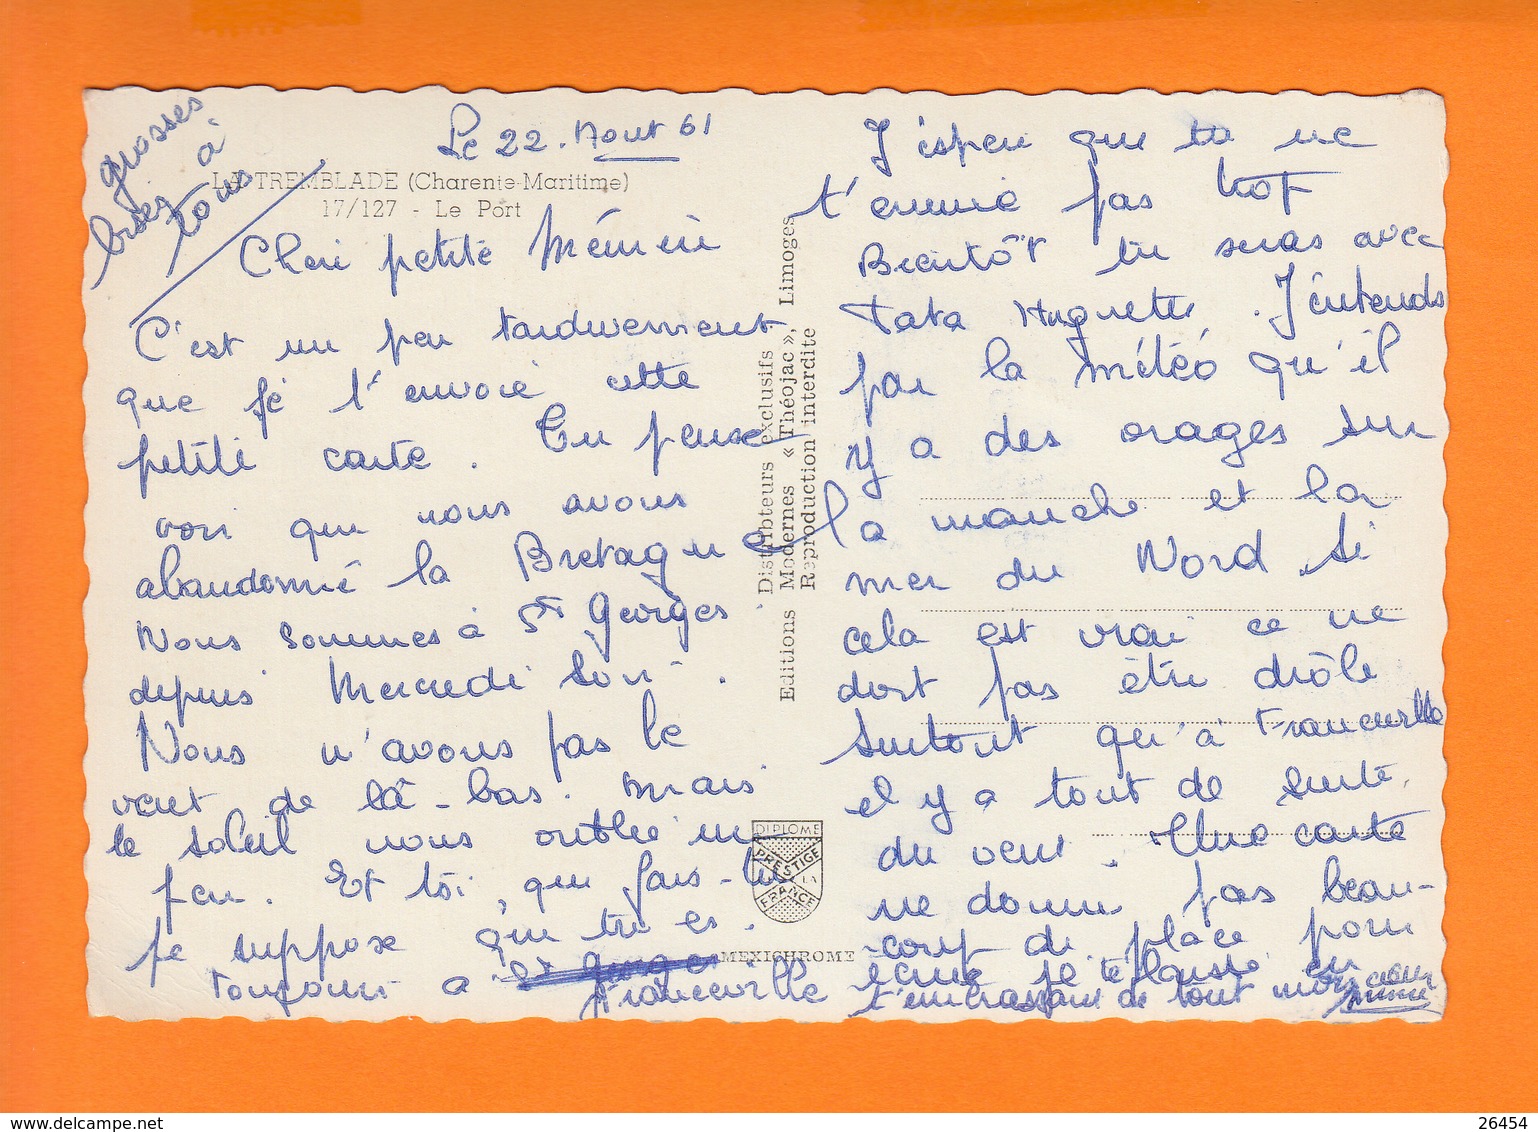 grosses
bises à
tous
Le 22. Aout 61
LA TREMBLADE (Charente-Maritime)
17/127 - Le Port
Cheri petite Mémère
C'est un peu tardivement
que je t'envoie cette
petite carte. Tu peux
voir que nous avons
abandonné la Bretagne
Nous sommes à St Georges
depuis Mercredi soir.
Nous n'avons pas le
vent de là-bas. mais
le soleil nous oublie un
peu. Et toi, que fais-tu
je suppose que tu es
toujours a St Georges
Franceville
Editions Modernes « Théojac », Limoges
Distribteurs exclusifs
Reproduction interdite
DIPLOME
PRESTIGE
DE LA
FRANCE
MEXICHROME
J'espere que tu ne
t'ennuie pas trop
Bientôt tu seras avec
Tata Huguette. J'entends
par la météo qu'il
y a des orages sur
la manche et la
mer du Nord. Si
cela est vrai ce ne
doit pas être drôle
surtout qu'à Franceville
il y a tout de suite
du vent. Une carte
ne donne pas beau-
coup de place pour
écrire je te laisse en
t'embrassant de tout mon cœur